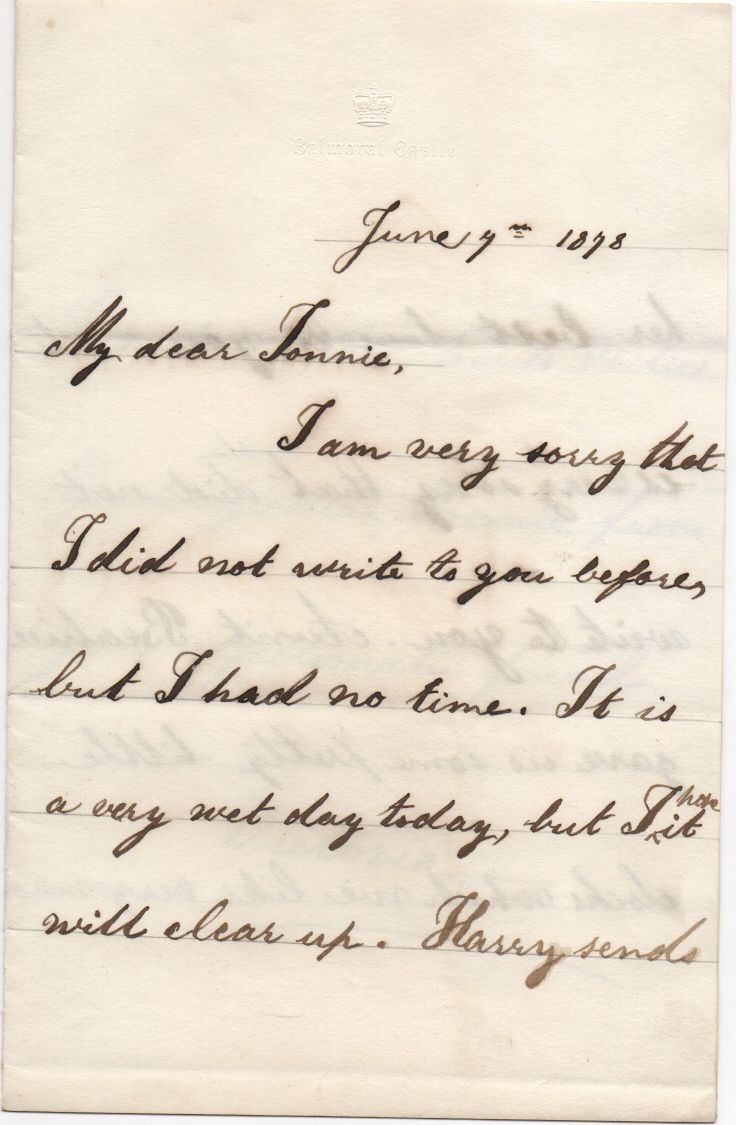 Balmoral Castle
June 7th 1878
My dear Tonnie,
I am very sorry that
I did not write to you before,
but I had no time. It is
a very wet day today, but I hope it
will clear up. Harry sends